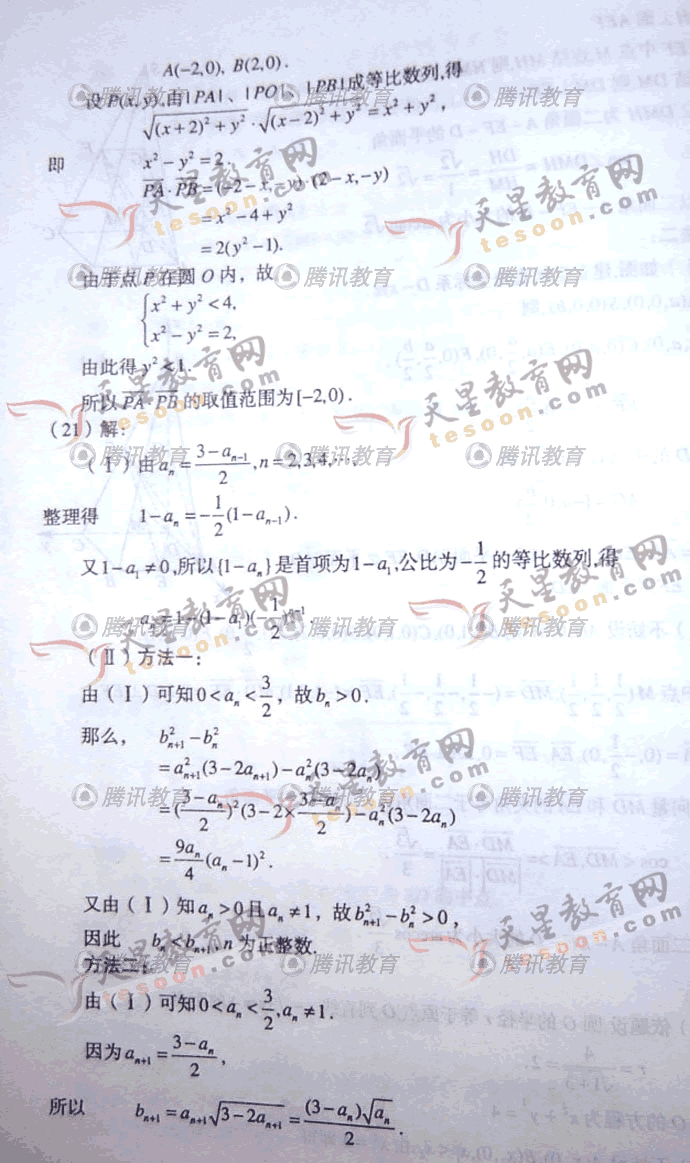 A(-2,0), B(2,0).
设P(x,y),由|PA|、|PO|、|PB|成等比数列,得
√((x+2)²+y²)·√((x-2)²+y²)=x²+y²,
即 x²-y²=2.
PA·PB=(-2-x,-y)·(2-x,-y)
=x²-4+y²
=2(y²-1).
由于点P在圆O内，故
{x²+y²<4,
x²-y²=2,
由此得y²<1.
所以PA·PB的取值范围为[-2,0).
(21)解:
(Ⅰ)由aₙ=(3-aₙ₋₁)/2,n=2,3,4,…,
整理得 1-aₙ=-1/2(1-aₙ₋₁).
又1-a₁≠0,所以{1-aₙ}是首项为1-a₁,公比为-1/2的等比数列,得
aₙ=1-(1-a₁)(-1/2)ⁿ⁻¹.
(Ⅱ)方法一:
由(Ⅰ)可知0<aₙ<3/2，故bₙ>0.
那么， b²ₙ₊₁-b²ₙ
=a²ₙ₊₁(3-2aₙ₊₁)-a²ₙ(3-2aₙ)
=((3-aₙ)/2)²(3-2×(3-aₙ)/2)-a²ₙ(3-2aₙ)
=9aₙ/4(aₙ-1)².
又由(Ⅰ)知aₙ>0且aₙ≠1，故b²ₙ₊₁-b²ₙ>0，
因此 bₙ<bₙ₊₁,n为正整数.
方法二:
由(Ⅰ)可知0<aₙ<3/2,aₙ≠1.
因为aₙ₊₁=(3-aₙ)/2,
所以 bₙ₊₁=aₙ₊₁√(3-2aₙ₊₁)=(3-aₙ)√aₙ/2.
腾讯教育
天星教育网
tesoon.com